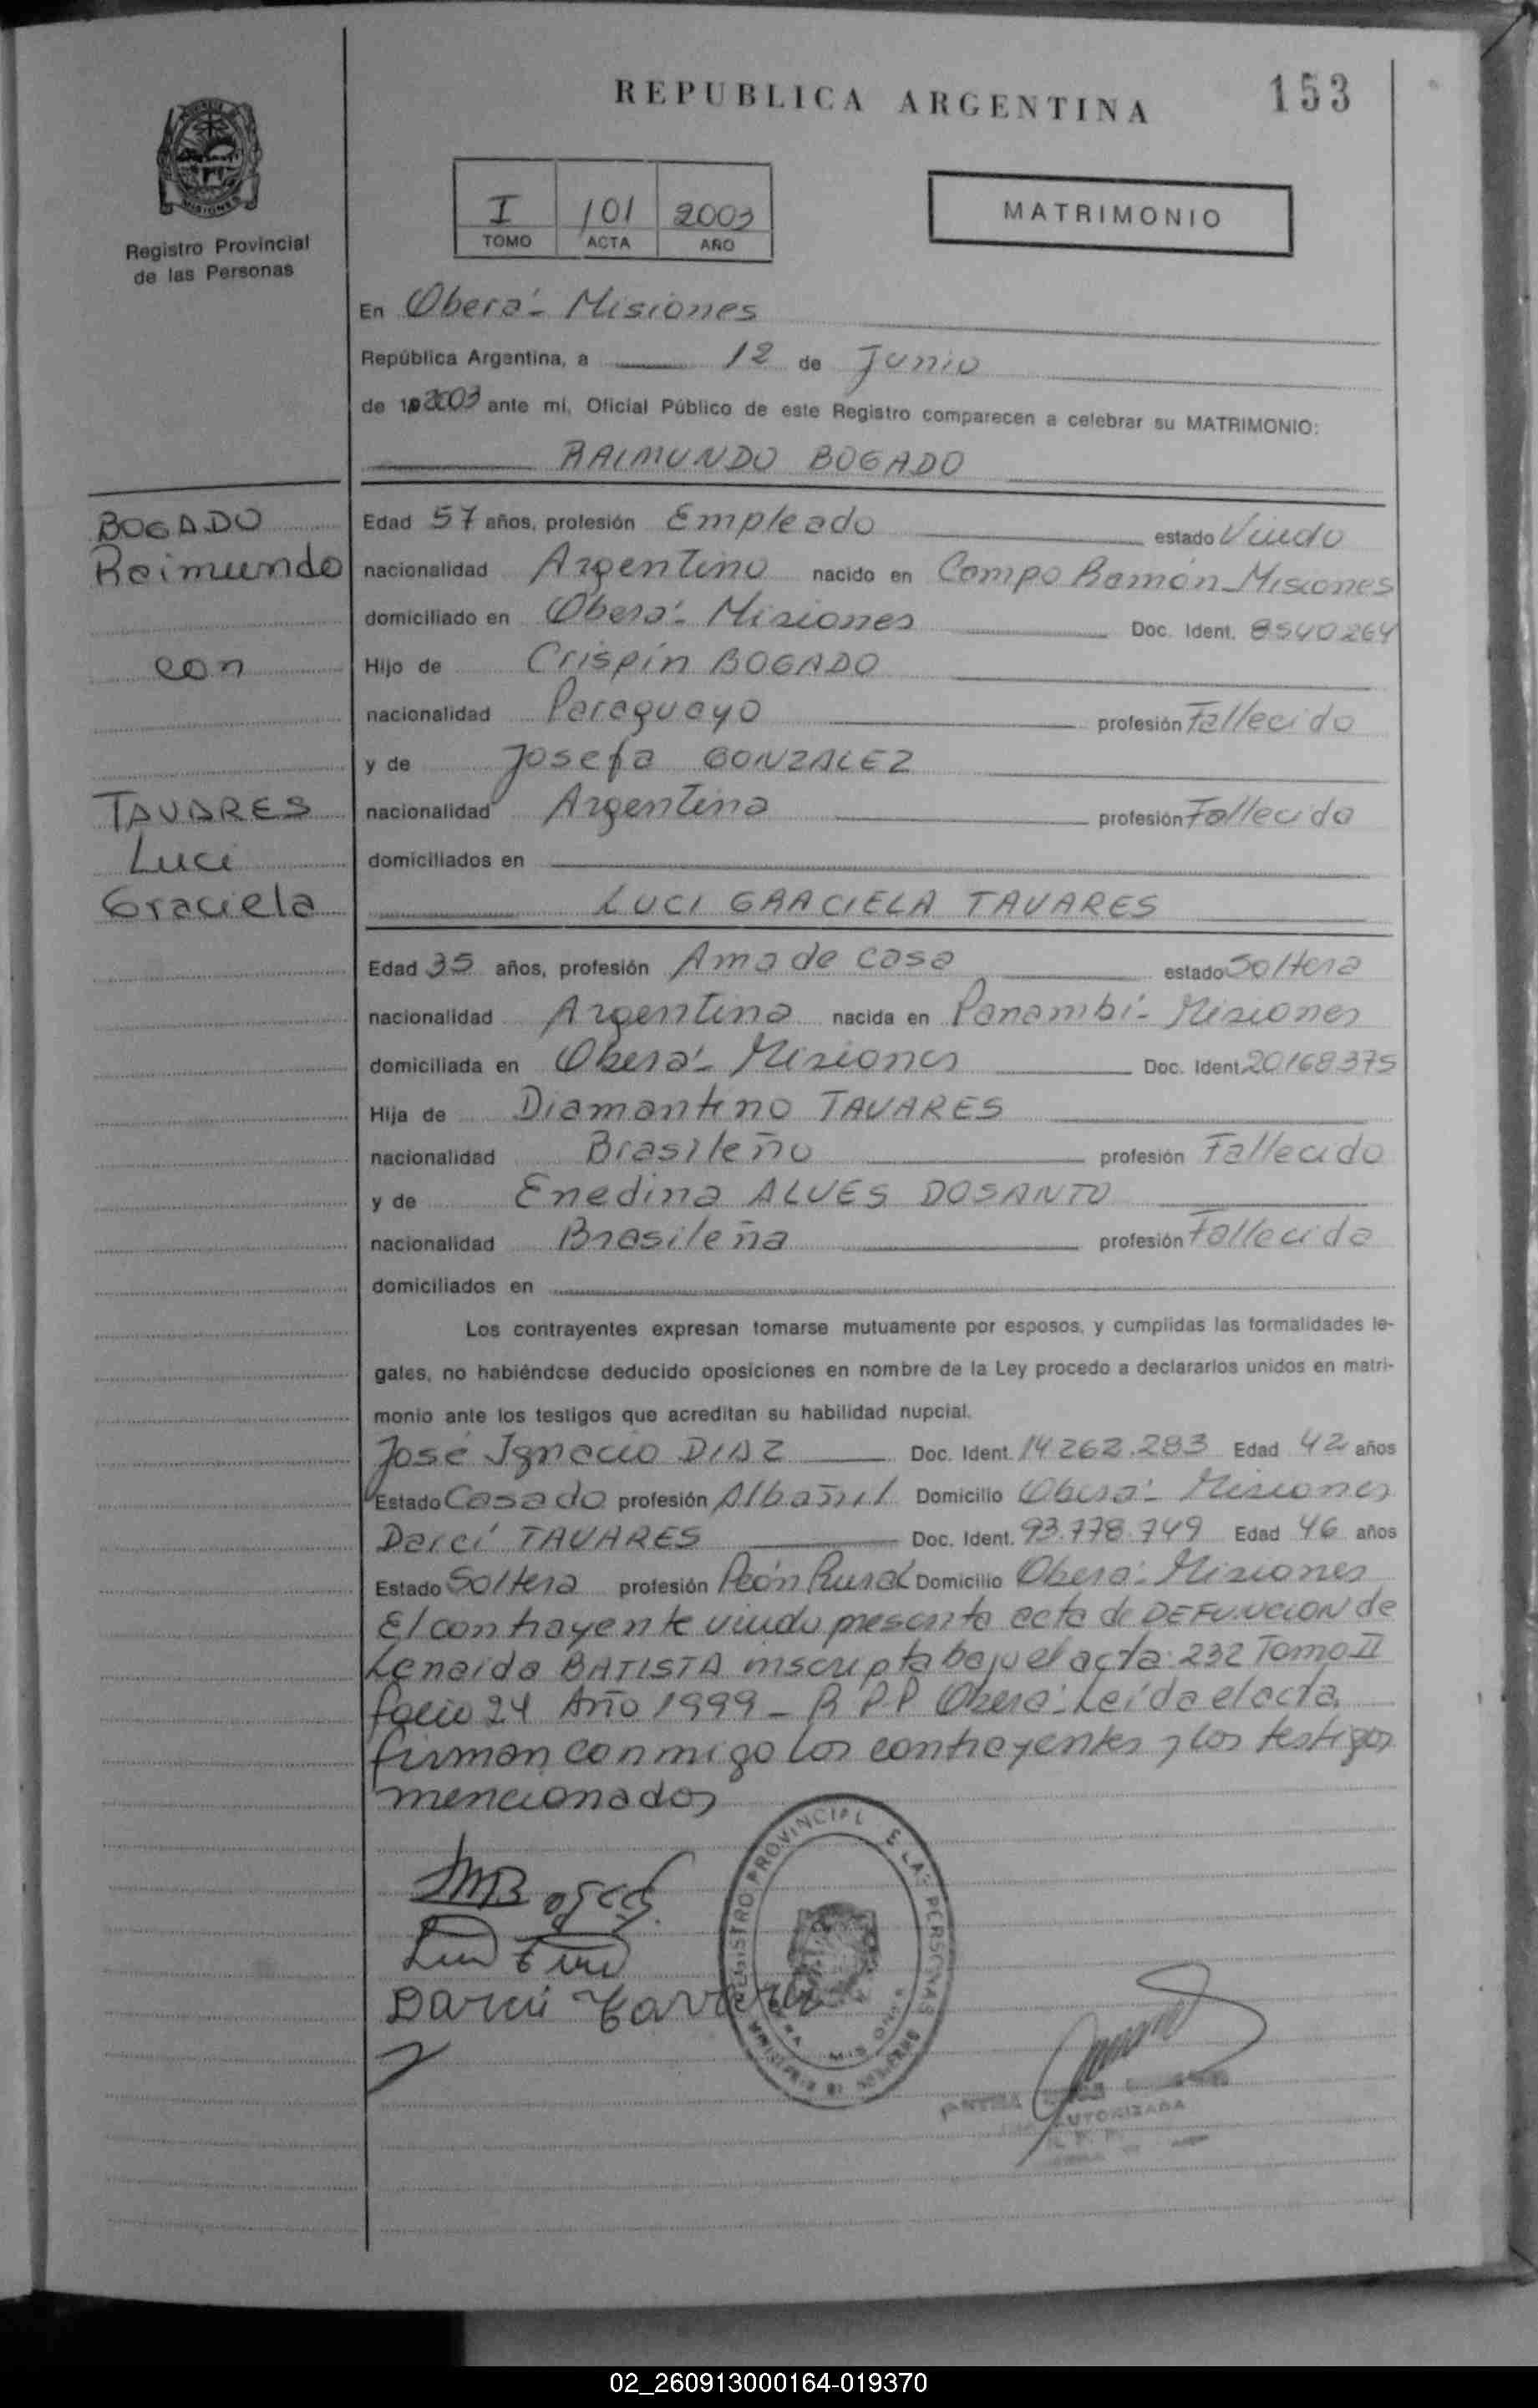 REPUBLICA ARGENTINA
153
MISIONES
Registro Provincial
de las Personas
I 101 2003
TOMO ACTA AÑO
MATRIMONIO
En Oberá - Misiones
República Argentina, a 12 de Junio
de 2003 ante mí, Oficial Público de este Registro comparecen a celebrar su MATRIMONIO:
RAIMUNDO BOGADO
BOGADO
Raimundo
con
TAVARES
Luci
Graciela
Edad 57 años, profesión Empleado estado Viudo
nacionalidad Argentino nacido en Campo Ramón - Misiones
domiciliado en Oberá - Misiones Doc. Ident. 8540264
Hijo de Crispín BOGADO
nacionalidad Paraguayo profesión Fallecido
y de Josefa GONZALEZ
nacionalidad Argentina profesión Fallecida
domiciliados en
LUCI GRACIELA TAVARES
Edad 35 años, profesión Ama de casa estado Soltera
nacionalidad Argentina nacida en Panambí - Misiones
domiciliada en Oberá - Misiones Doc. Ident. 20168375
Hija de Diamantino TAVARES
nacionalidad Brasileño profesión Fallecido
y de Enedina ALVES DOSANTO
nacionalidad Brasileña profesión Fallecida
domiciliados en
Los contrayentes expresan tomarse mutuamente por esposos, y cumplidas las formalidades le-
gales, no habiéndose deducido oposiciones en nombre de la Ley procedo a declararlos unidos en matri-
monio ante los testigos que acreditan su habilidad nupcial.
José Ignacio DIAZ Doc. Ident. 14.262.283 Edad 42 años
Estado Casado profesión Albañil Domicilio Oberá - Misiones
Darcí TAVARES Doc. Ident. 93.778.749 Edad 46 años
Estado Soltera profesión Peón Rural Domicilio Oberá - Misiones
El contrayente viudo presenta acta de DEFUNCION de
Lenaida BATISTA inscripta bajo el acta 232 Tomo II
folio 24 Año 1999 - R.P.P Oberá - Leída el acta
firman conmigo los contrayentes y los testigos
mencionados
REGISTRO PROVINCIAL DE LAS PERSONAS
Darci Tavares
AUTORIZADA
02_260913000164-019370